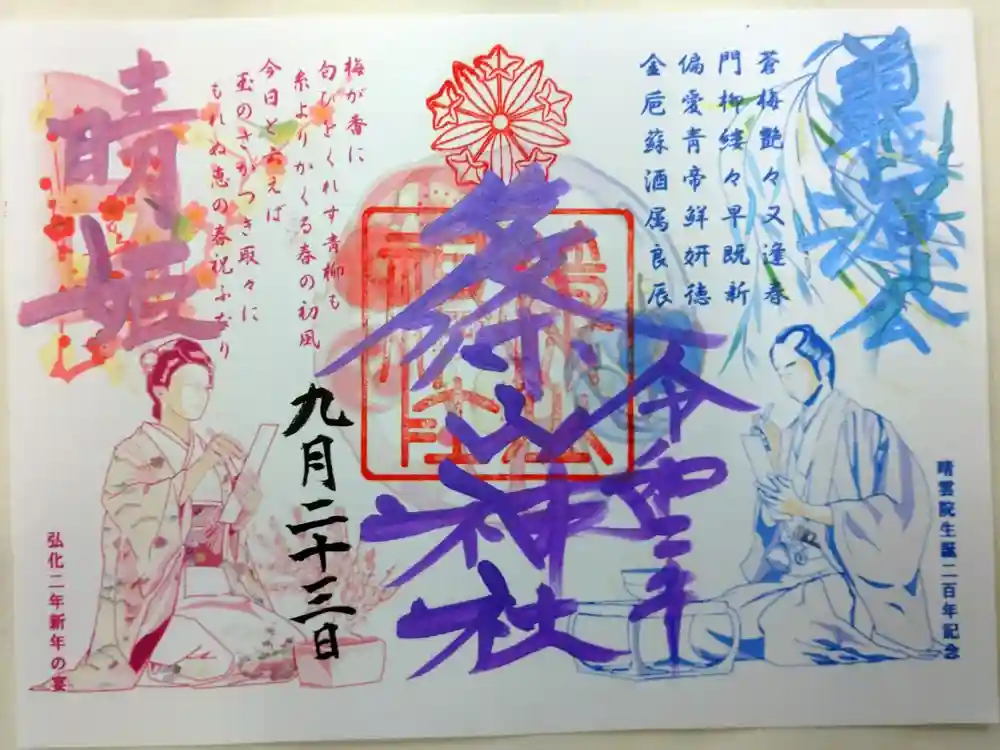 蒼梅艶々又逢春
門柳縷々早既新
偏愛青帝鮮妍徳
金巵蘇酒属良辰
晴雲院生誕二百年記念
篠山神社
令和三年
九月二十三日
梅が香に
匂ひをくれす青柳も
糸よりかくる春の初風
今日といえば
玉のさかつき取々に
もれぬ恵の春祝ふなり
晴姫
弘化二年新年の宴